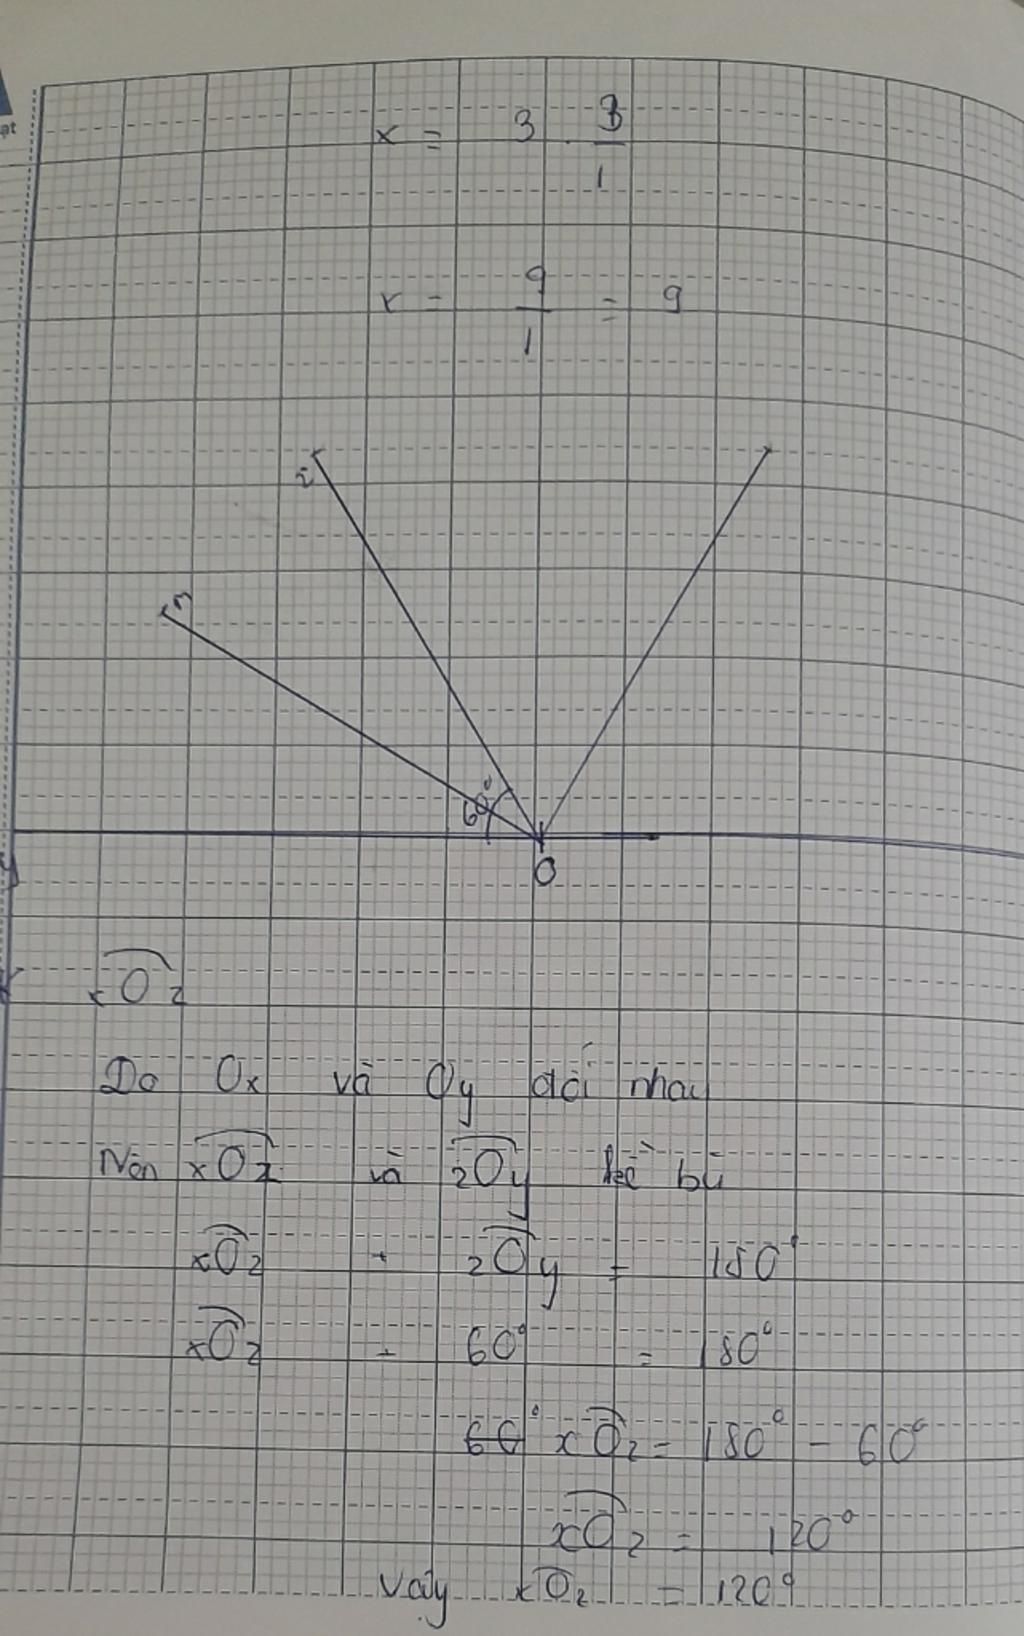 ạt
x = 3 . 3/1
x = 9/1 = 9
z
m
60°
O
xOz
Do Ox và Oy đối nhau
Nên xOz và zOy kề bù
xOz + zOy = 180°
xOz + 60° = 180°
60° xOz = 180° - 60°
xOz = 120°
Vậy xOz = 120°